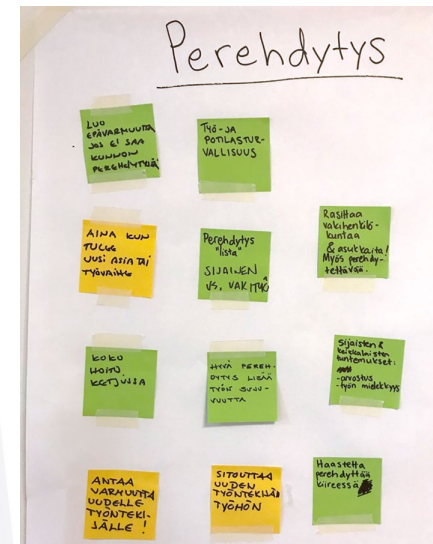 Perehdytys
LUO
EPÄVARMUUTTA
JOS EI SAA
KUNNON
PEREHDYTYSTÄ
TYÖ- JA
POTILASTUR-
VALLISUUS
AINA KUN
TULEE
UUSI ASIA TAI
TYÖVAIHE
Perehdytys
"lista"
SIJAINEN
VS. VAKITYÖ
Rasittaa
vakihenkilö-
kuntaa
& asukkaita!
Myös perehdy-
tettävää.
KOKO
HOITO
KETJUSSA
HYVÄ PEREH-
DYTYS LISÄÄ
TYÖN SUJU-
VUUTTA
Sijaisten &
keikkalaisten
tuntemukset:
-arvostus
-työn mielekkyys
ANTAA
VARMUUTTA
UUDELLE
TYÖNTEKI-
JÄLLE!
SITOUTTAA
UUDEN
TYÖNTEKIJÄN
TYÖHÖN
Haastetta
perehdyttää
kiireessä